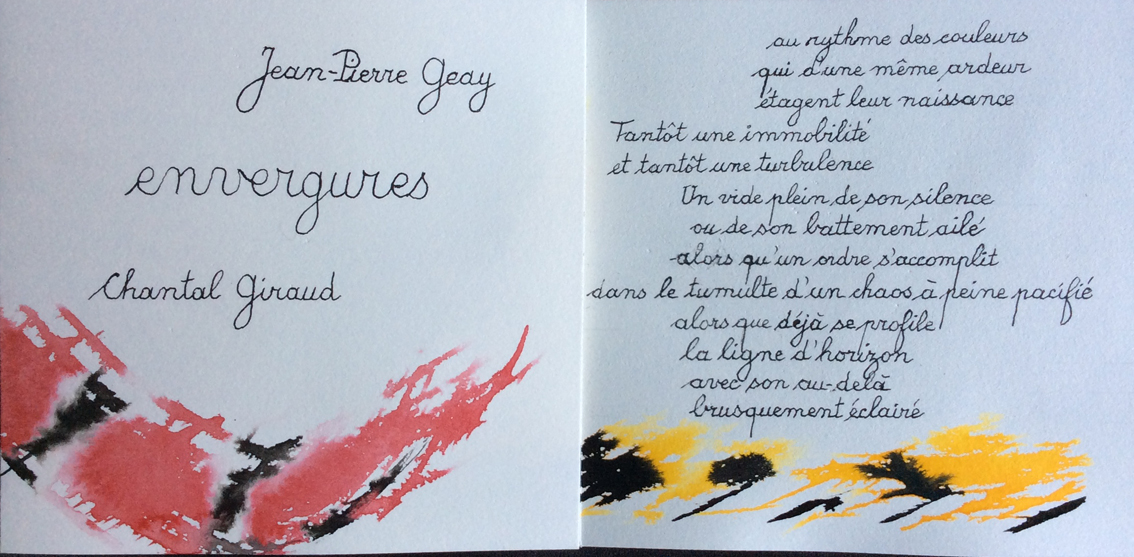 Jean-Pierre Geay
envergures
Chantal Giraud
au rythme des couleurs
qui d'une même ardeur
étagent leur naissance
Tantôt une immobilité
et tantôt une turbulence
Un vide plein de son silence
ou de son battement ailé
alors qu'un ordre s'accomplit
dans le tumulte d'un chaos à peine pacifié
alors que déjà se profile
la ligne d'horizon
avec son au-delà
brusquement éclairé